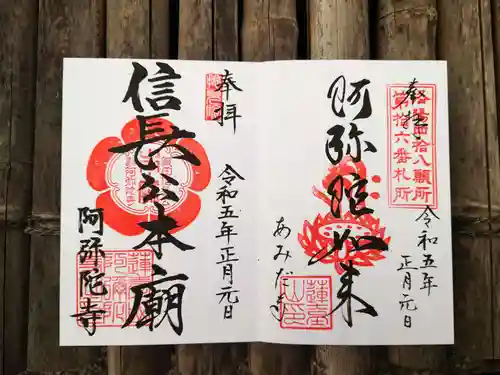 奉拝
第拾六番札所
阿弥陀如来
令和五年
正月元日
あみだ寺
奉拝
信長公本廟
令和五年正月元日
阿弥陀寺